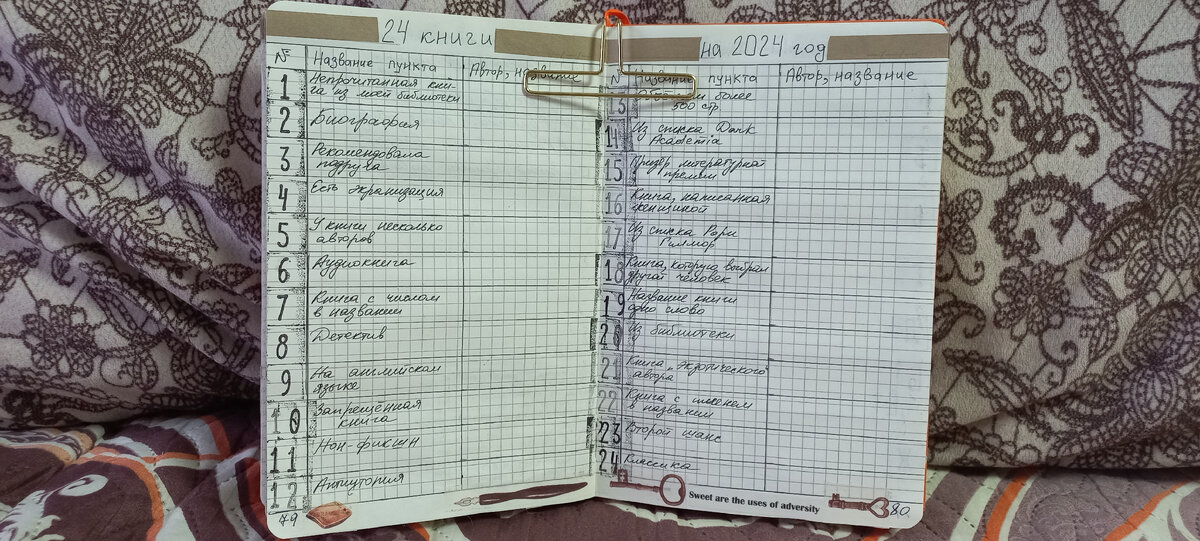 24 книги
№ Название пункта Автор, название
1 Непрочитанная кни-
га из моей библиотеки
2 Биография
3 Рекомендовала
подруга
4 Есть экранизация
5 У книги несколько
авторов
6 Аудиокнига
7 Книга с числом
в названии
8 Детектив
9 На английском
языке
10 Запрещённая
книга
11 Нон-фикшн
12 Антиутопия
79
на 2024 год
№ Название пункта Автор, название
13 более
500 стр
14 Из списка Dark
Academia
15 Призёр литературной
премии
16 Книга, написанная
женщиной
17 Из списка Рори
Гилмор
18 Книга, которую выбрал
другой человек
19 Название книги
одно слово
20 Из библиотеки
21 Книга экзотического
автора
22 Книга с именем
в названии
23 Второй шанс
24 Классика
Sweet are the uses of adversity
80